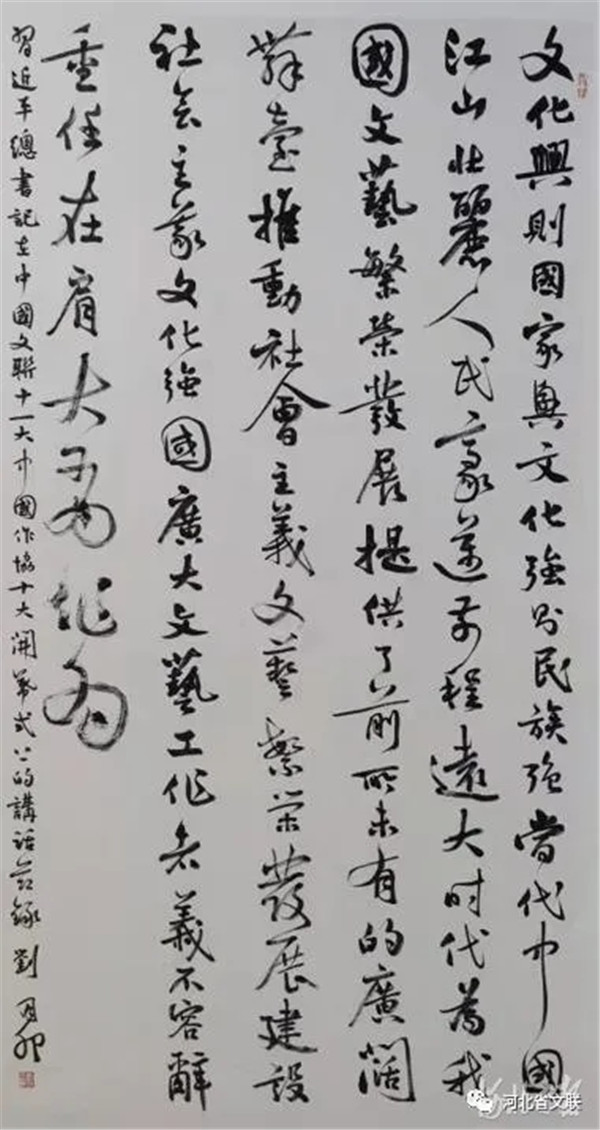 文化興則國家興文化強則民族強當代中國
江山壯麗人民豪邁前程遠大时代為我
國文藝繁榮發展提供了前所未有的廣闊
舞臺推動社會主義文藝繁榮發展建設
社会主義文化強國廣大文藝工作者義不容辭
重任在肩大有作為
習近平總書記在中國文聯十一大中國作協十大開幕式上的講话節錄 劉月卯
河北省文联